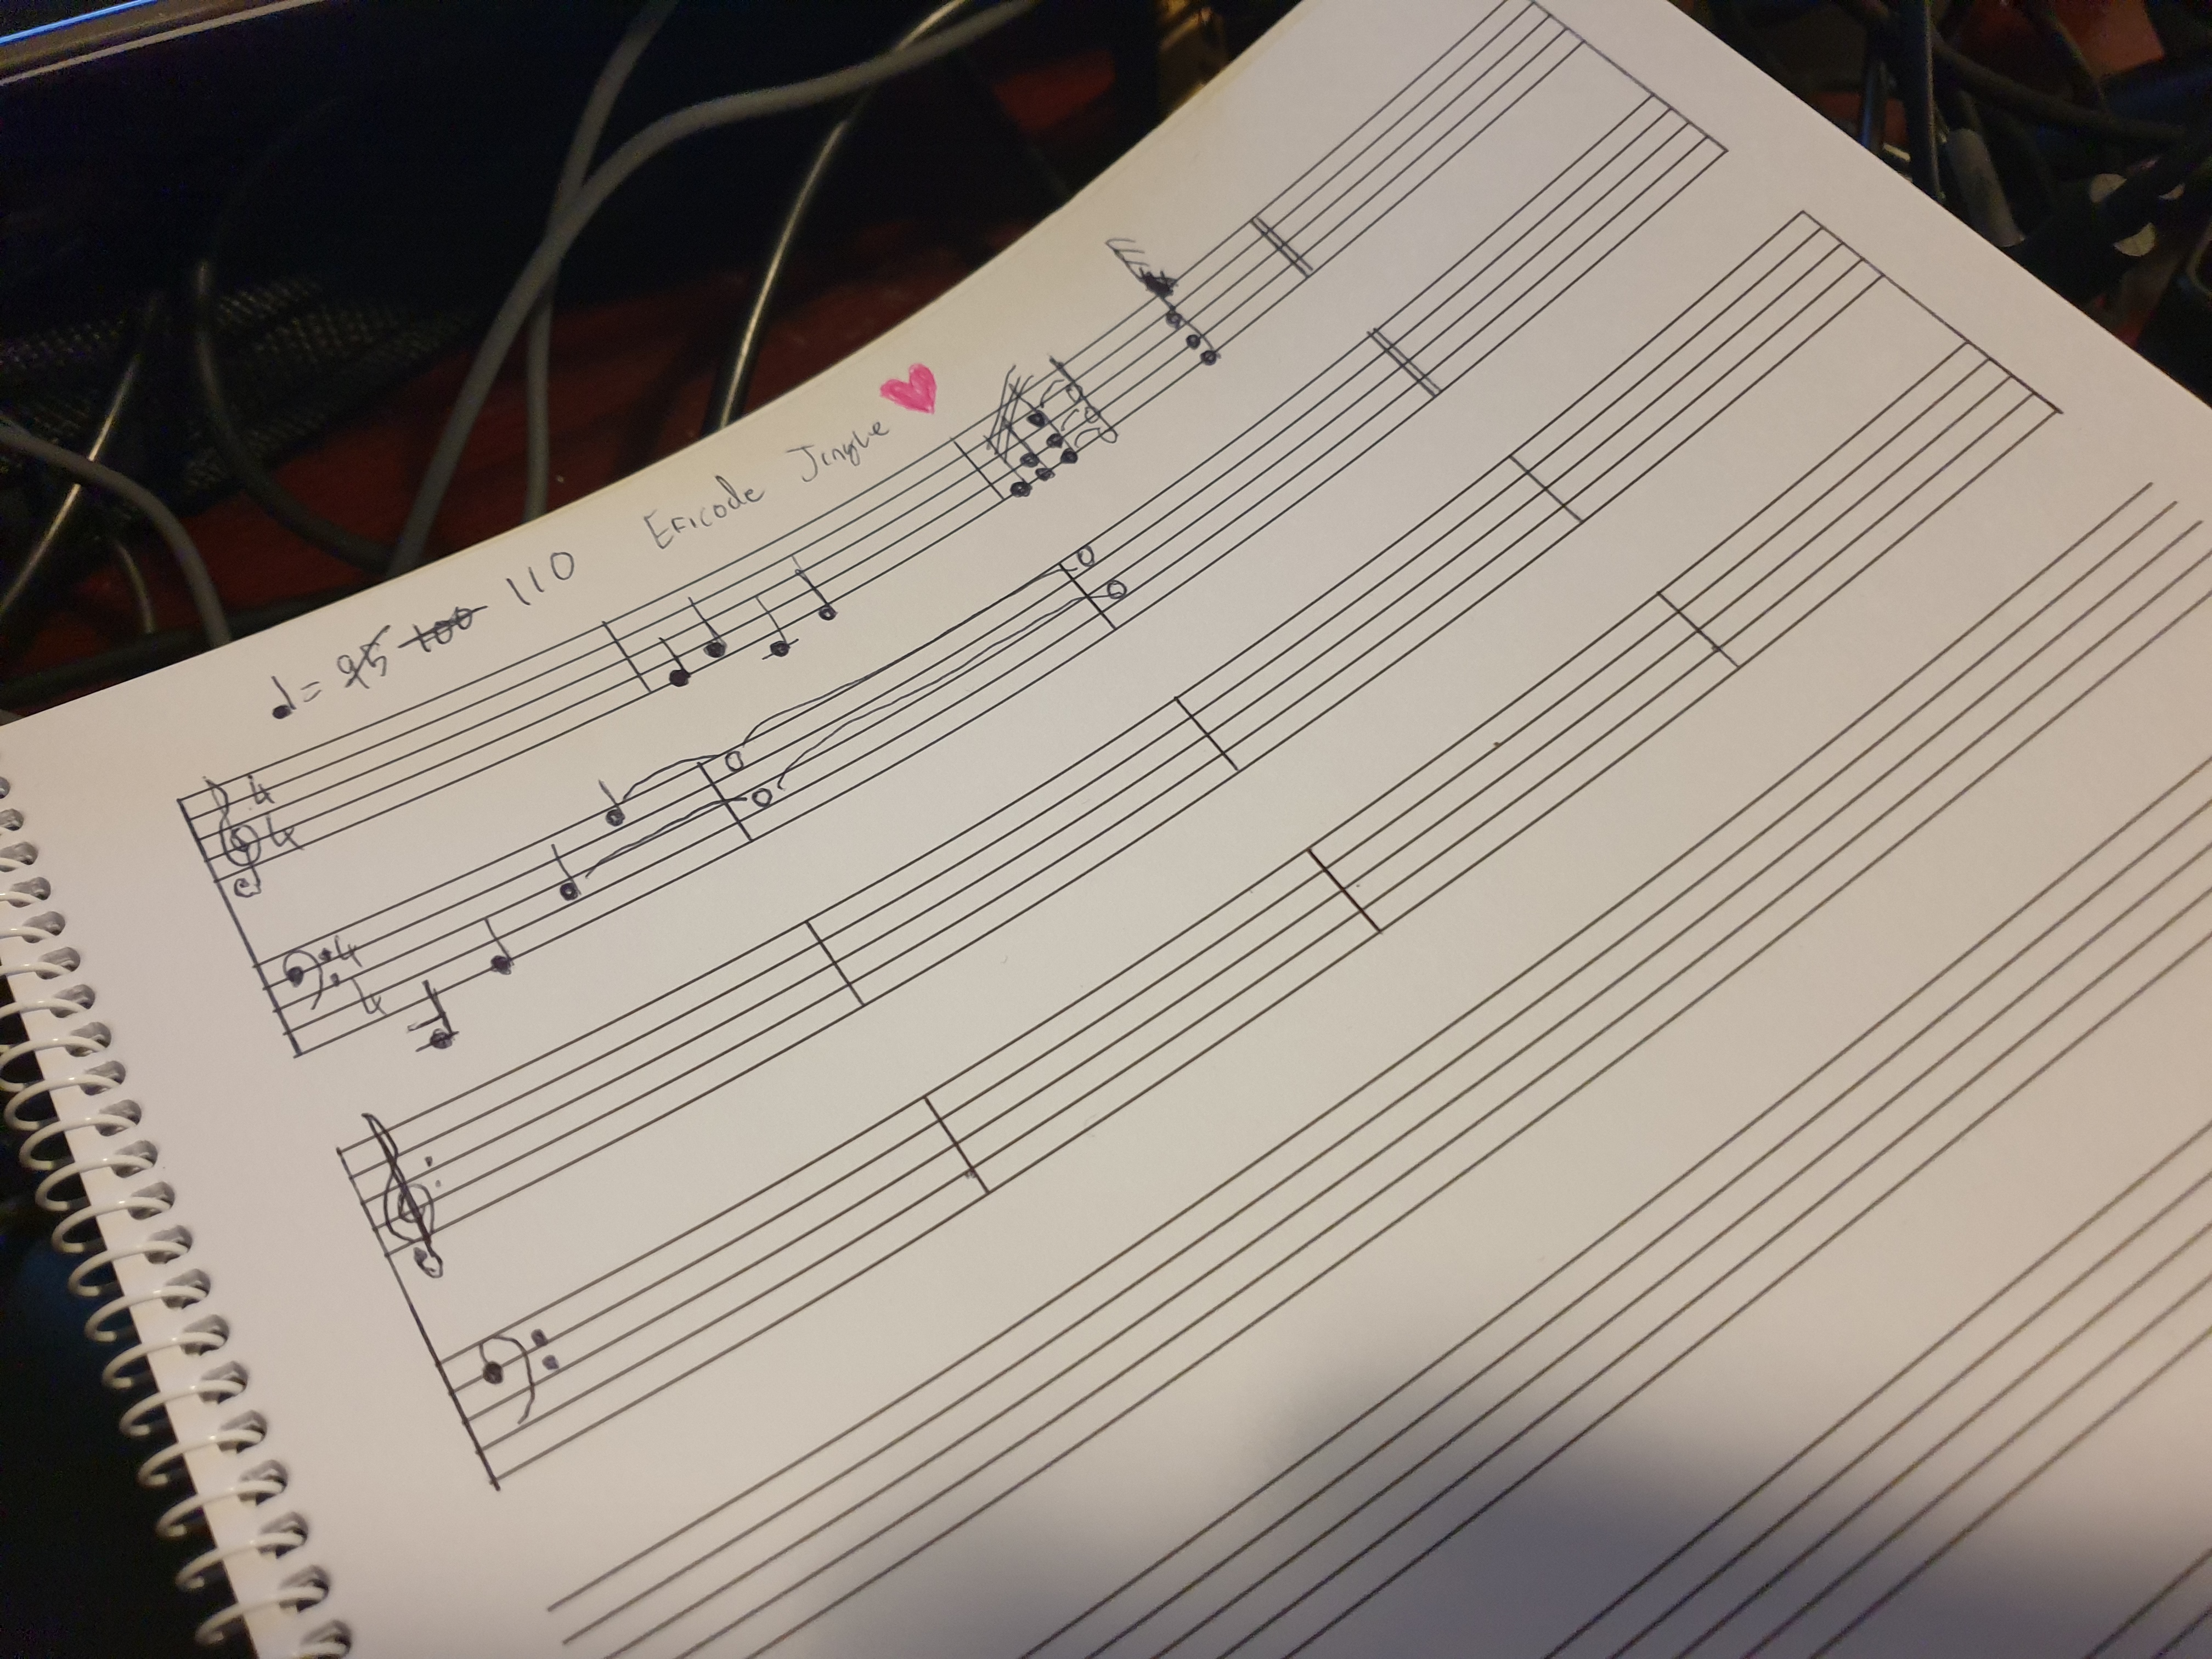 ♩= 95 100 110 Eficode Jingle ♥
4
4
4
4